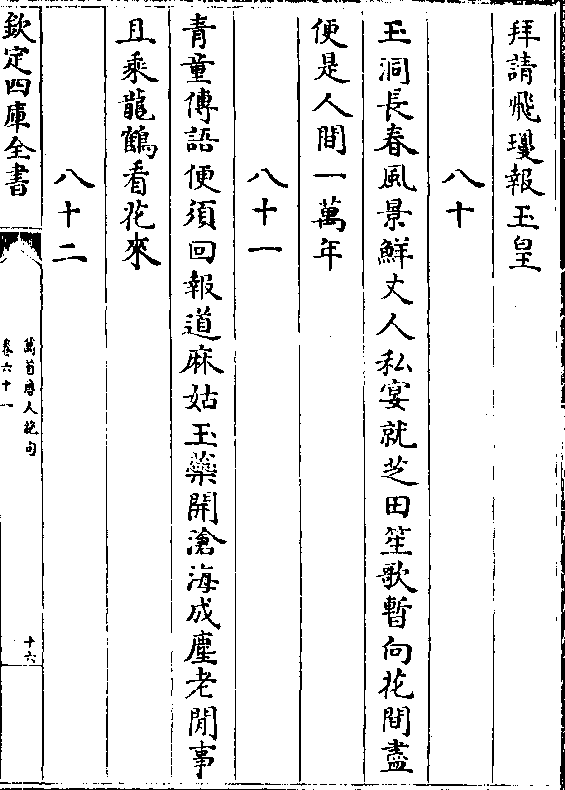 拜請飛瓊報玉皇
八十
玉洞長春風景鮮丈人私宴就芝田笙歌暫向花間盡
便是人間一萬年
八十一
青童傳語便須回報道麻姑玉蘂開滄海成塵老閒事
且乘龍鶴看花來
八十二
欽定四庫全書
萬首唐人絶句
卷六十一
十六